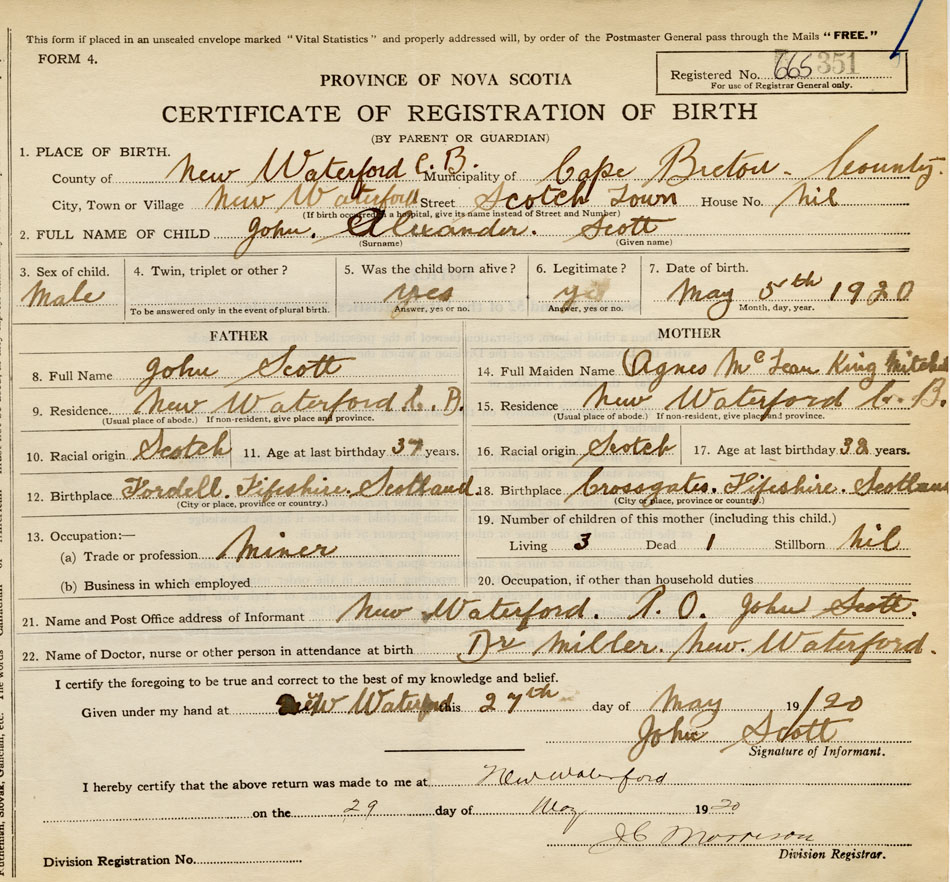 This form if placed in an unsealed envelope marked "Vital Statistics" and properly addressed will, by order of the Postmaster General pass through the Mails "FREE."
FORM 4.
Registered No. 665 351
For use of Registrar General only.
PROVINCE OF NOVA SCOTIA
CERTIFICATE OF REGISTRATION OF BIRTH
(BY PARENT OR GUARDIAN)
1. PLACE OF BIRTH.
County of New Waterford C.B. Municipality of Cape Breton - County.
City, Town or Village New Waterford Street Scotch Town House No. nil
(If birth occurred in a hospital, give its name instead of Street and Number)
2. FULL NAME OF CHILD John. Alexander. Scott
(Surname) (Given name)
3. Sex of child. 4. Twin, triplet or other? 5. Was the child born alive? 6. Legitimate? 7. Date of birth.
Male yes yes May 5th 1920
To be answered only in the event of plural birth. Answer, yes or no. Answer, yes or no. Month, day, year.
FATHER MOTHER
8. Full Name John Scott 14. Full Maiden Name Agnes Mc Lean King
9. Residence. New Waterford C. B. 15. Residence New Waterford C. B.
(Usual place of abode.) If non-resident, give place and province. (Usual place of abode.) If non-resident, give place and province.
10. Racial origin Scotch 11. Age at last birthday 37 years. 16. Racial origin Scotch 17. Age at last birthday. years.
12. Birthplace Fordell. Fifeshire. Scotland. 18. Birthplace Crossgates. Fifeshire. Scotland
(City or place, province or country.) (City or place, province or country.)
13. Occupation:— 19. Number of children of this mother (including this child.)
(a) Trade or profession Miner Living 3 Dead 1 Stillborn nil
(b) Business in which employed 20. Occupation, if other than household duties
21. Name and Post Office address of Informant New Waterford. P. O. John Scott.
22. Name of Doctor, nurse or other person in attendance at birth Dr Miller. New. Waterford.
I certify the foregoing to be true and correct to the best of my knowledge and belief.
Given under my hand at New Waterford this 27th day of May 19/20
John Scott
Signature of Informant.
I hereby certify that the above return was made to me at New Waterford
on the 29 day of May 1920
J C Morrison
Division Registrar.
Division Registration No.